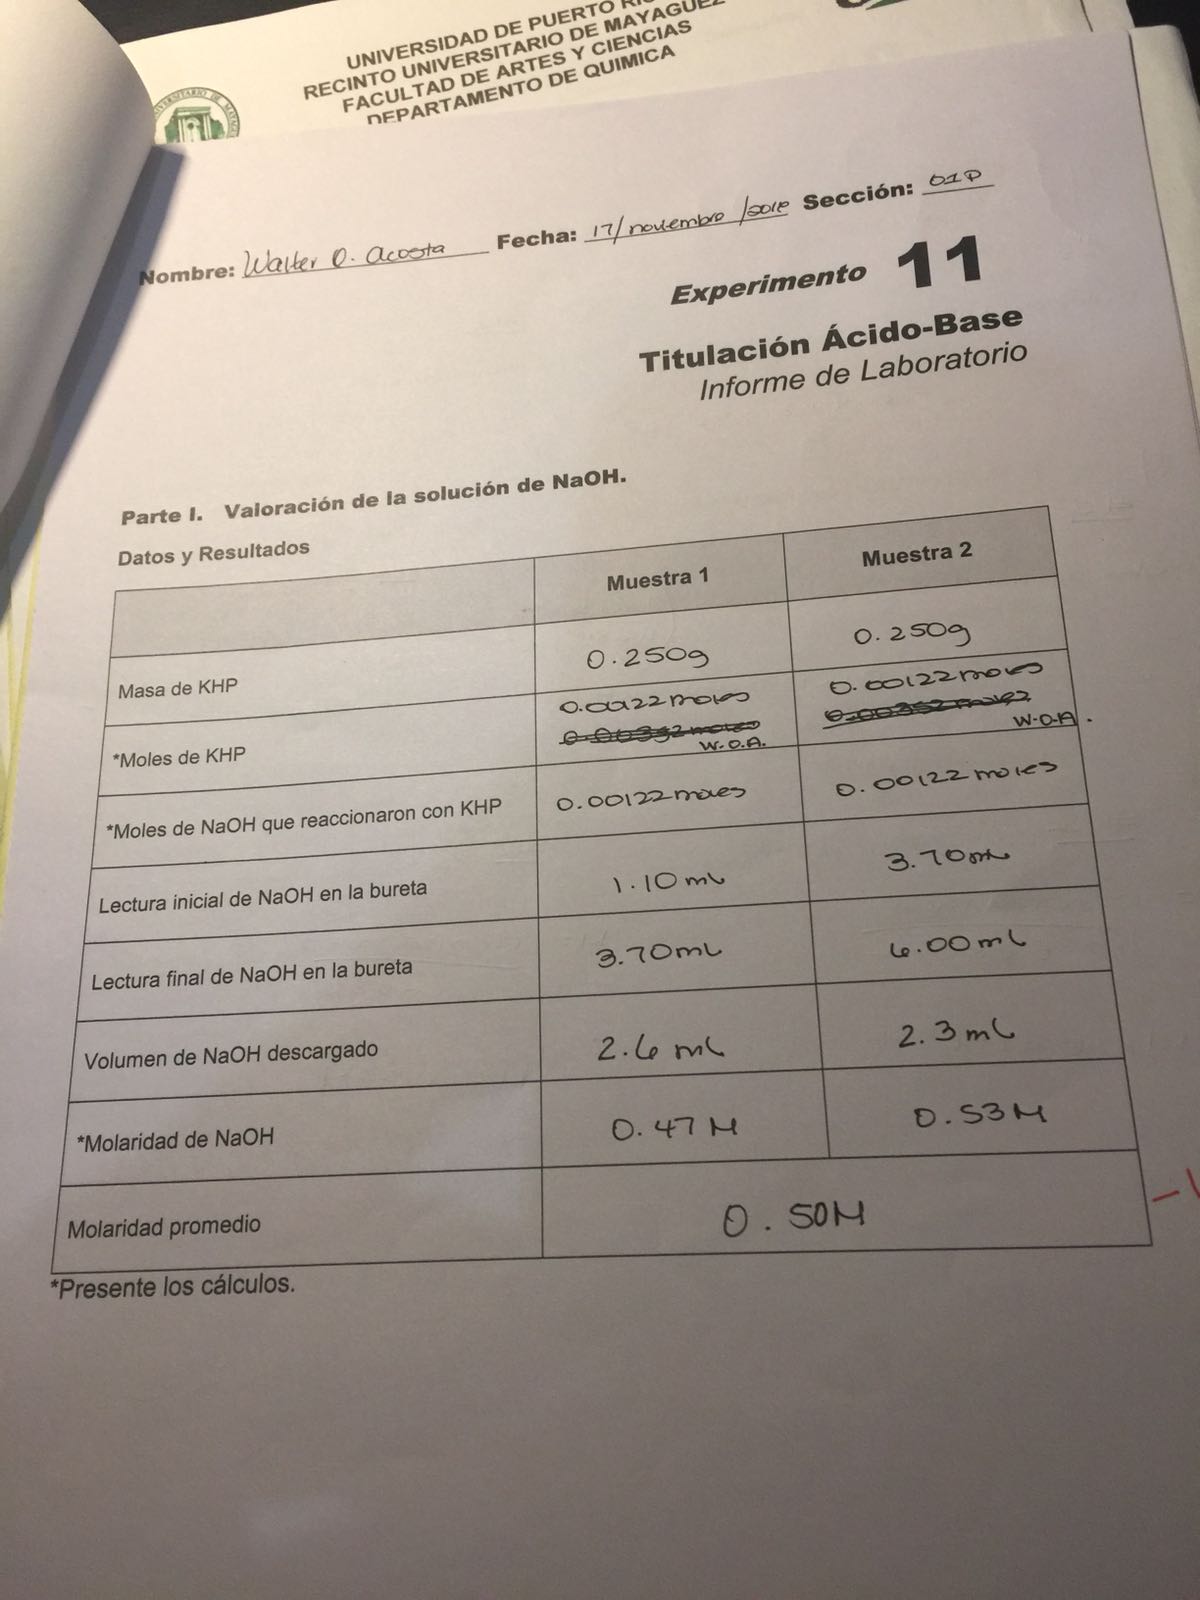 UNIVERSIDAD DE PUERTO
RECINTO UNIVERSITARIO DE MAYAGUEZ
FACULTAD DE ARTES Y CIENCIAS
DEPARTAMENTO DE QUIMICA
Nombre: Walter O. Acosta Fecha: 17/noviembre Sección: 01P
Experimento 11
Titulación Ácido-Base
Informe de Laboratorio
Parte I. Valoración de la solución de NaOH.
Datos y Resultados
Muestra 1 Muestra 2
Masa de KHP 0.250g 0.250g
0.00122 moles 0.00122 moles
*Moles de KHP 0.00352 moles 0.00352 moles
W.O.A. W.O.A.
*Moles de NaOH que reaccionaron con KHP 0.00122 moles 0.00122 moles
Lectura inicial de NaOH en la bureta 1.10 mL 3.70 mL
Lectura final de NaOH en la bureta 3.70 mL 6.00 mL
Volumen de NaOH descargado 2.6 mL 2.3 mL
*Molaridad de NaOH 0.47 M 0.53 M
Molaridad promedio 0.50M
*Presente los cálculos.